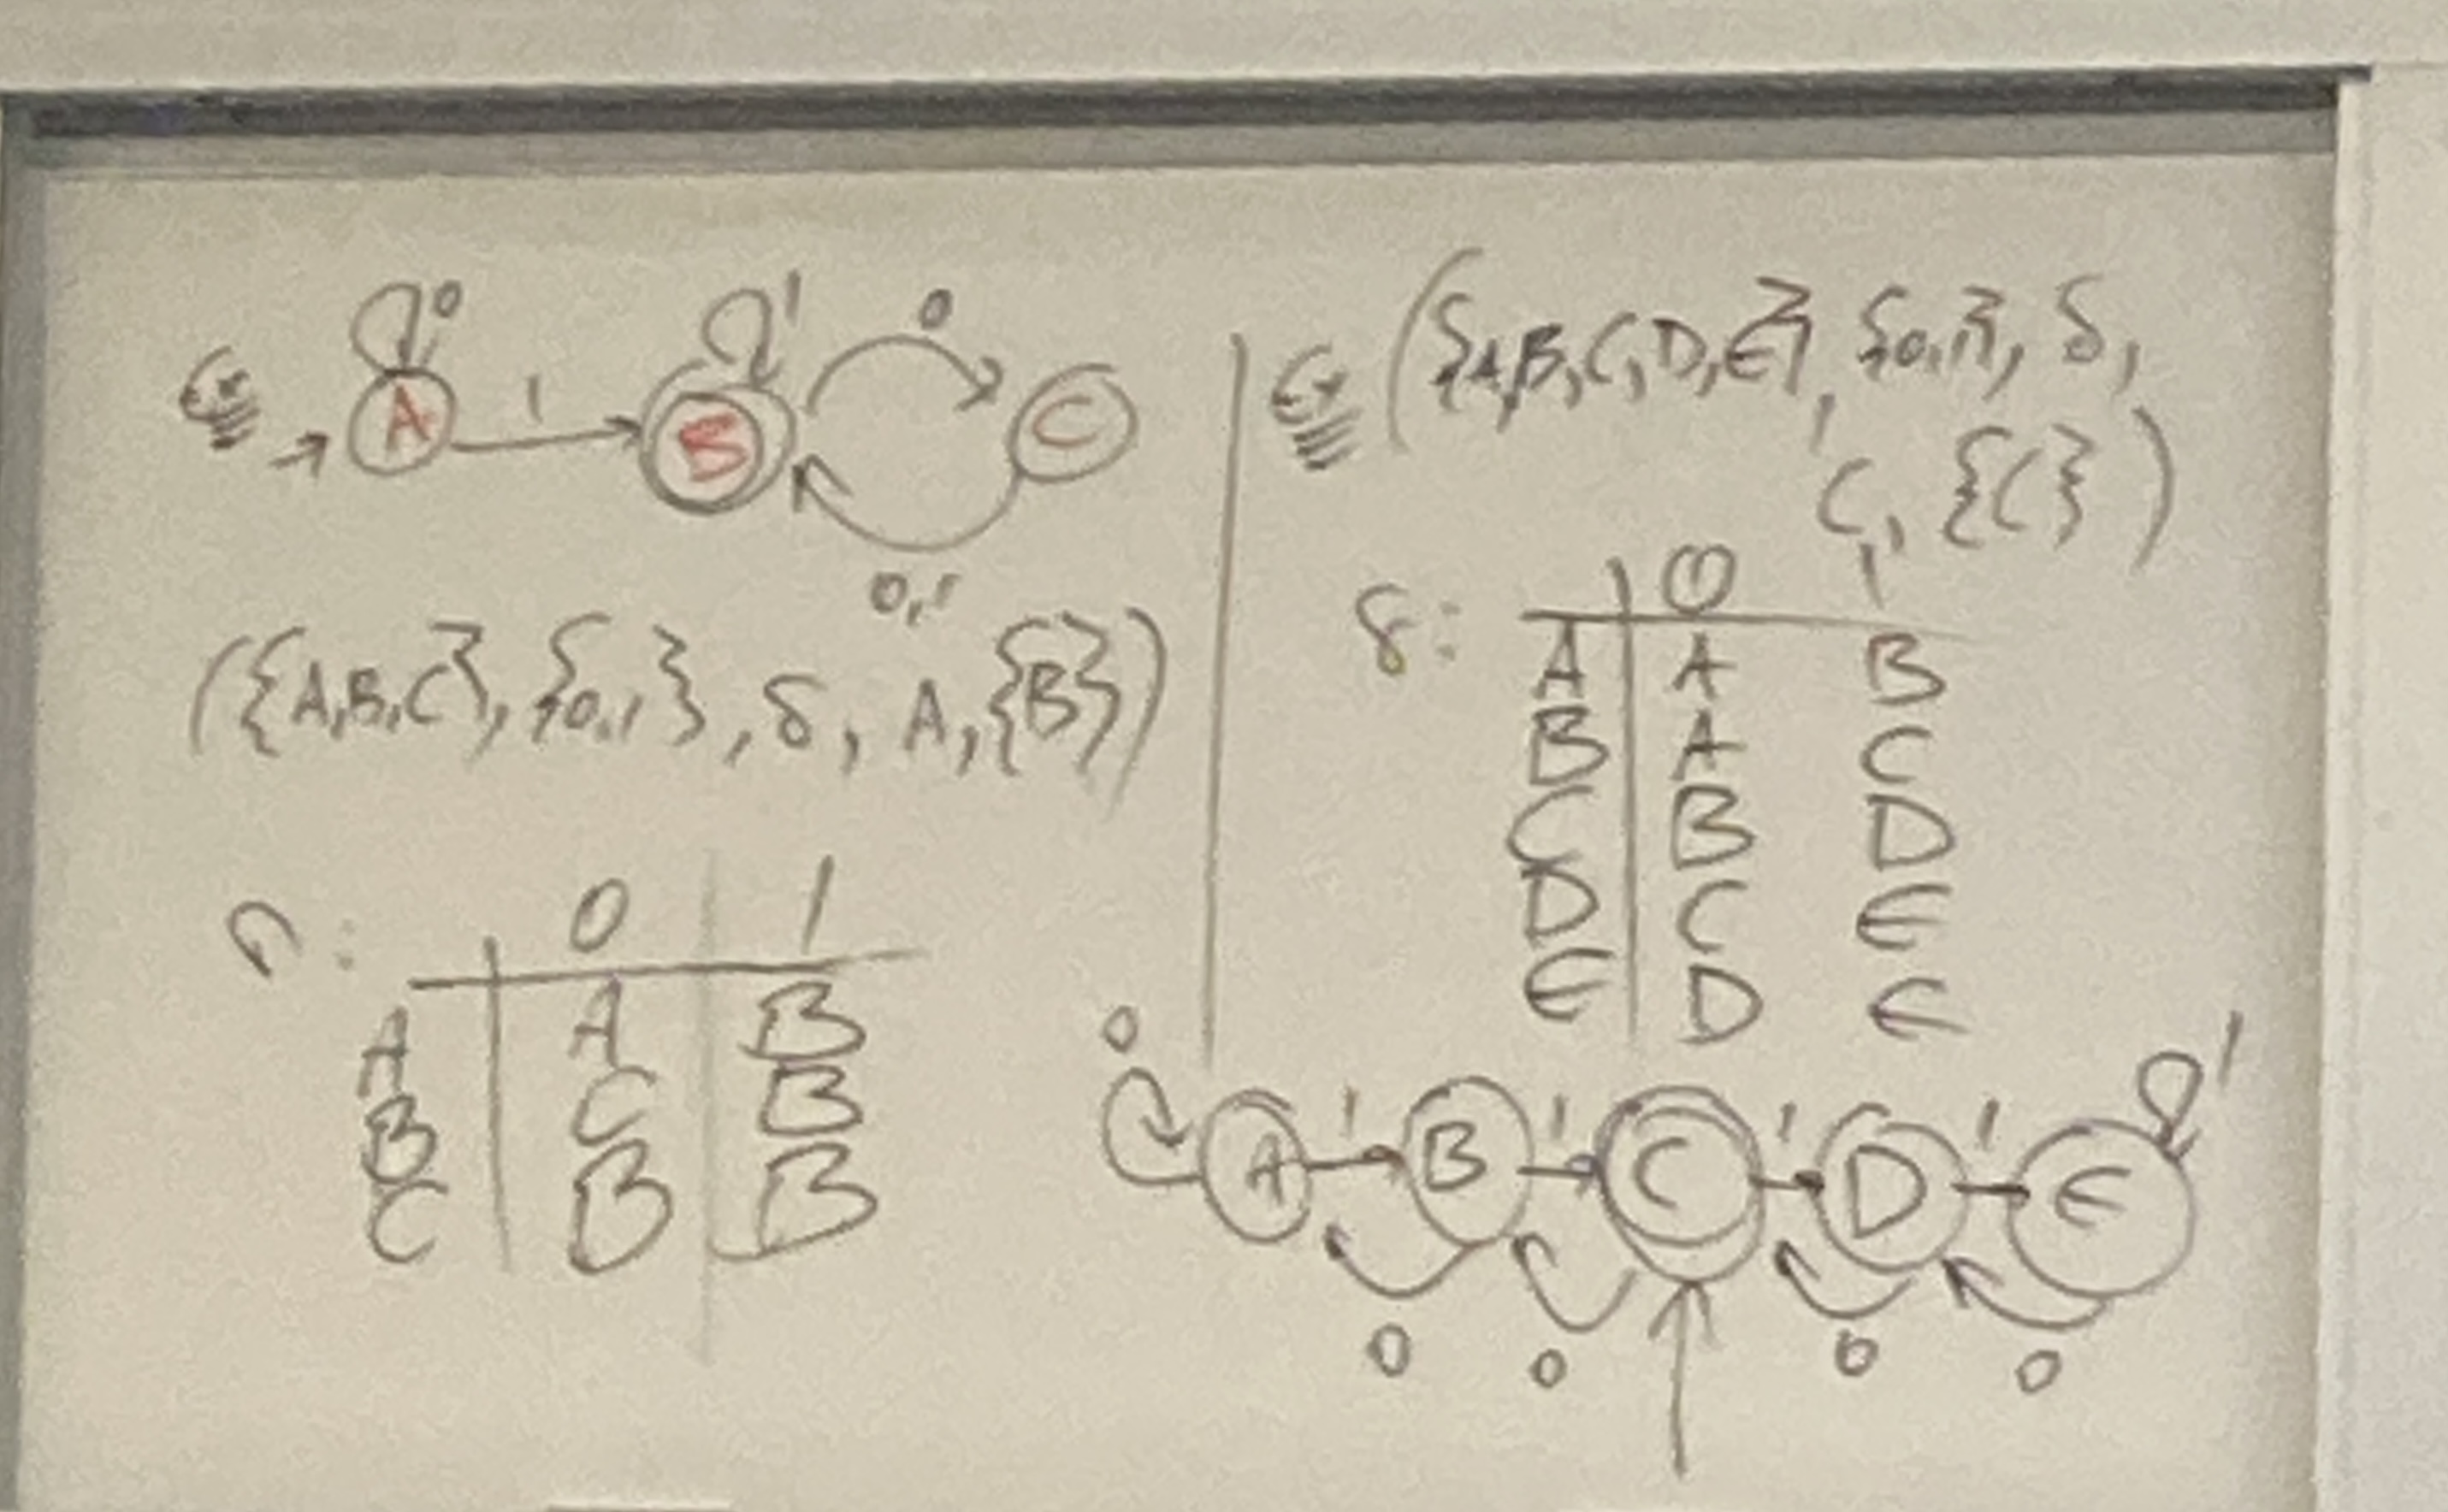 Ex
0 1 0
→ A 1 B C
0,1
({A,B,C}, {0,1}, δ, A, {B})
:
0 1
A A B
B C B
C B B
Ex ({A,B,C,D,E}, {0,1}, δ,
C, {C})
δ: 0 1
A A B
B A C
C B D
D C E
E D E
0 1
1 1 1 1
A B C D E
0 0 0 0